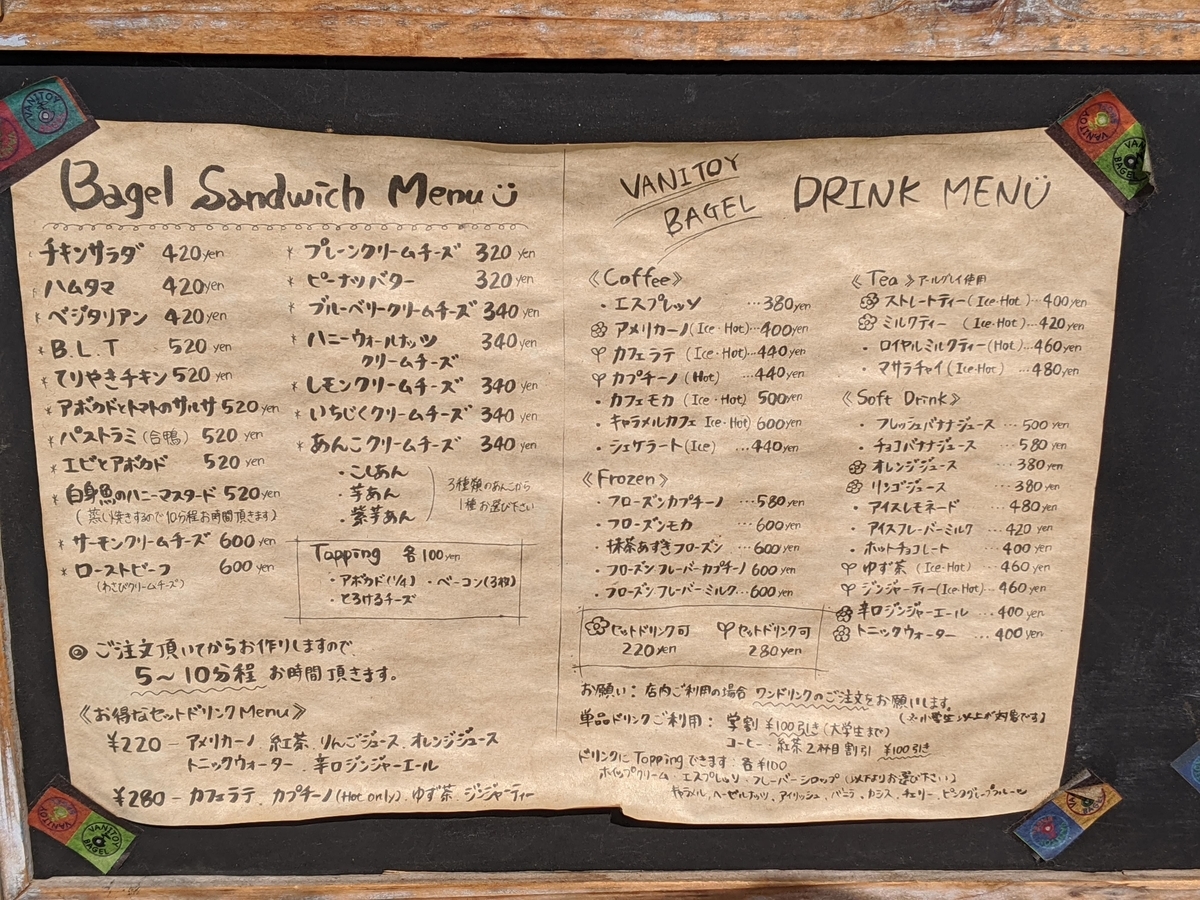 Bagel Sandwich Menu
チキンサラダ 420yen
ハムタマ 420yen
* ベジタリアン 420yen
* B.L.T 520 yen
* てりやきチキン 520 yen
* アボカドとトマトのサルサ 520 yen
* パストラミ(合鴨) 520 yen
* エビとアボカド 520 yen
* 白身魚のハニーマスタード 520 yen
(蒸し焼きするので10分程お時間頂きます)
* サーモンクリームチーズ 600 yen
* ローストビーフ 600 yen
(わさびクリームチーズ)
* プレーンクリームチーズ 320 yen
* ピーナツバター 320 yen
* ブルーベリークリームチーズ 340 yen
* ハニーウォールナッツ 340 yen
クリームチーズ
* レモンクリームチーズ 340 yen
* いちじくクリームチーズ 340 yen
* あんこクリームチーズ 340 yen
・こしあん
・芋あん
・紫芋あん
3種類のあんこから
1種お選び下さい
Topping 各100yen
・アボカド(1/4) ・ベーコン(3枚)
・とろけるチーズ
◎ ご注文頂いてからお作りしますので、
5〜10分程 お時間頂きます。
《お得なセットドリンクMenu》
¥220 − アメリカーノ 紅茶、りんごジュース、オレンジジュース
トニックウォーター、辛口ジンジャーエール
¥280 − カフェラテ、カプチーノ(Hot only)、ゆず茶、ジンジャーティー
VANITOY
BAGEL
DRINK MENU
《Coffee》
・エスプレッソ …380yen
アメリカーノ(Ice・Hot)…400yen
カフェラテ (Ice・Hot)…440yen
カプチーノ (Hot) …440yen
・カフェモカ (Ice・Hot) 500yen
・キャラメルカフェ Ice・Hot) 600yen
・シェケラート(Ice) …440yen
《Frozen》
・フローズンカプチーノ …580yen
・フローズンモカ …600yen
・抹茶あずきフローズン …600yen
・フローズンフレーバーカプチーノ 600 yen
・フローズンフレーバーミルク…600yen
セットドリンク可
220yen
セットドリンク可
280yen
《Tea》アールグレイ使用
ストレートティー(Ice・Hot)…400yen
ミルクティー (Ice・Hot)…420yen
・ロイヤルミルクティー(Hot)…460yen
・マサラチャイ(Ice・Hot) …480yen
《Soft Drink》
・フレッシュバナナジュース …500 yen
・チョコバナナジュース …580 yen
オレンジジュース …380yen
リンゴジュース …380yen
・アイスレモネード …480yen
・アイスフレーバーミルク …420 yen
・ホットチョコレート …400 yen
ゆず茶 (Ice・Hot) …460 yen
ジンジャーティー(Ice・Hot)…460yen
辛口ジンジャーエール …400 yen
トニックウォーター …400 yen
お願い：店内ご利用の場合 ワンドリンクのご注文をお願いします。
(※小学生以上が対象です)
単品ドリンクご利用：学割 ¥100引き(大学生まで)
コーヒー・紅茶2杯目割引 ¥100引き
ドリンクに Topping できます：各¥100
ホイップクリーム、エスプレッソ、フレーバーシロップ(以下よりお選び下さい)
キャラメル、ヘーゼルナッツ、アイリッシュ、バニラ、カシス、チェリー、ピンクグレープフルーツ
VANITOY
VANITOY
VANITOY
BAGEL
VANITOY
VANITOY
BAGEL